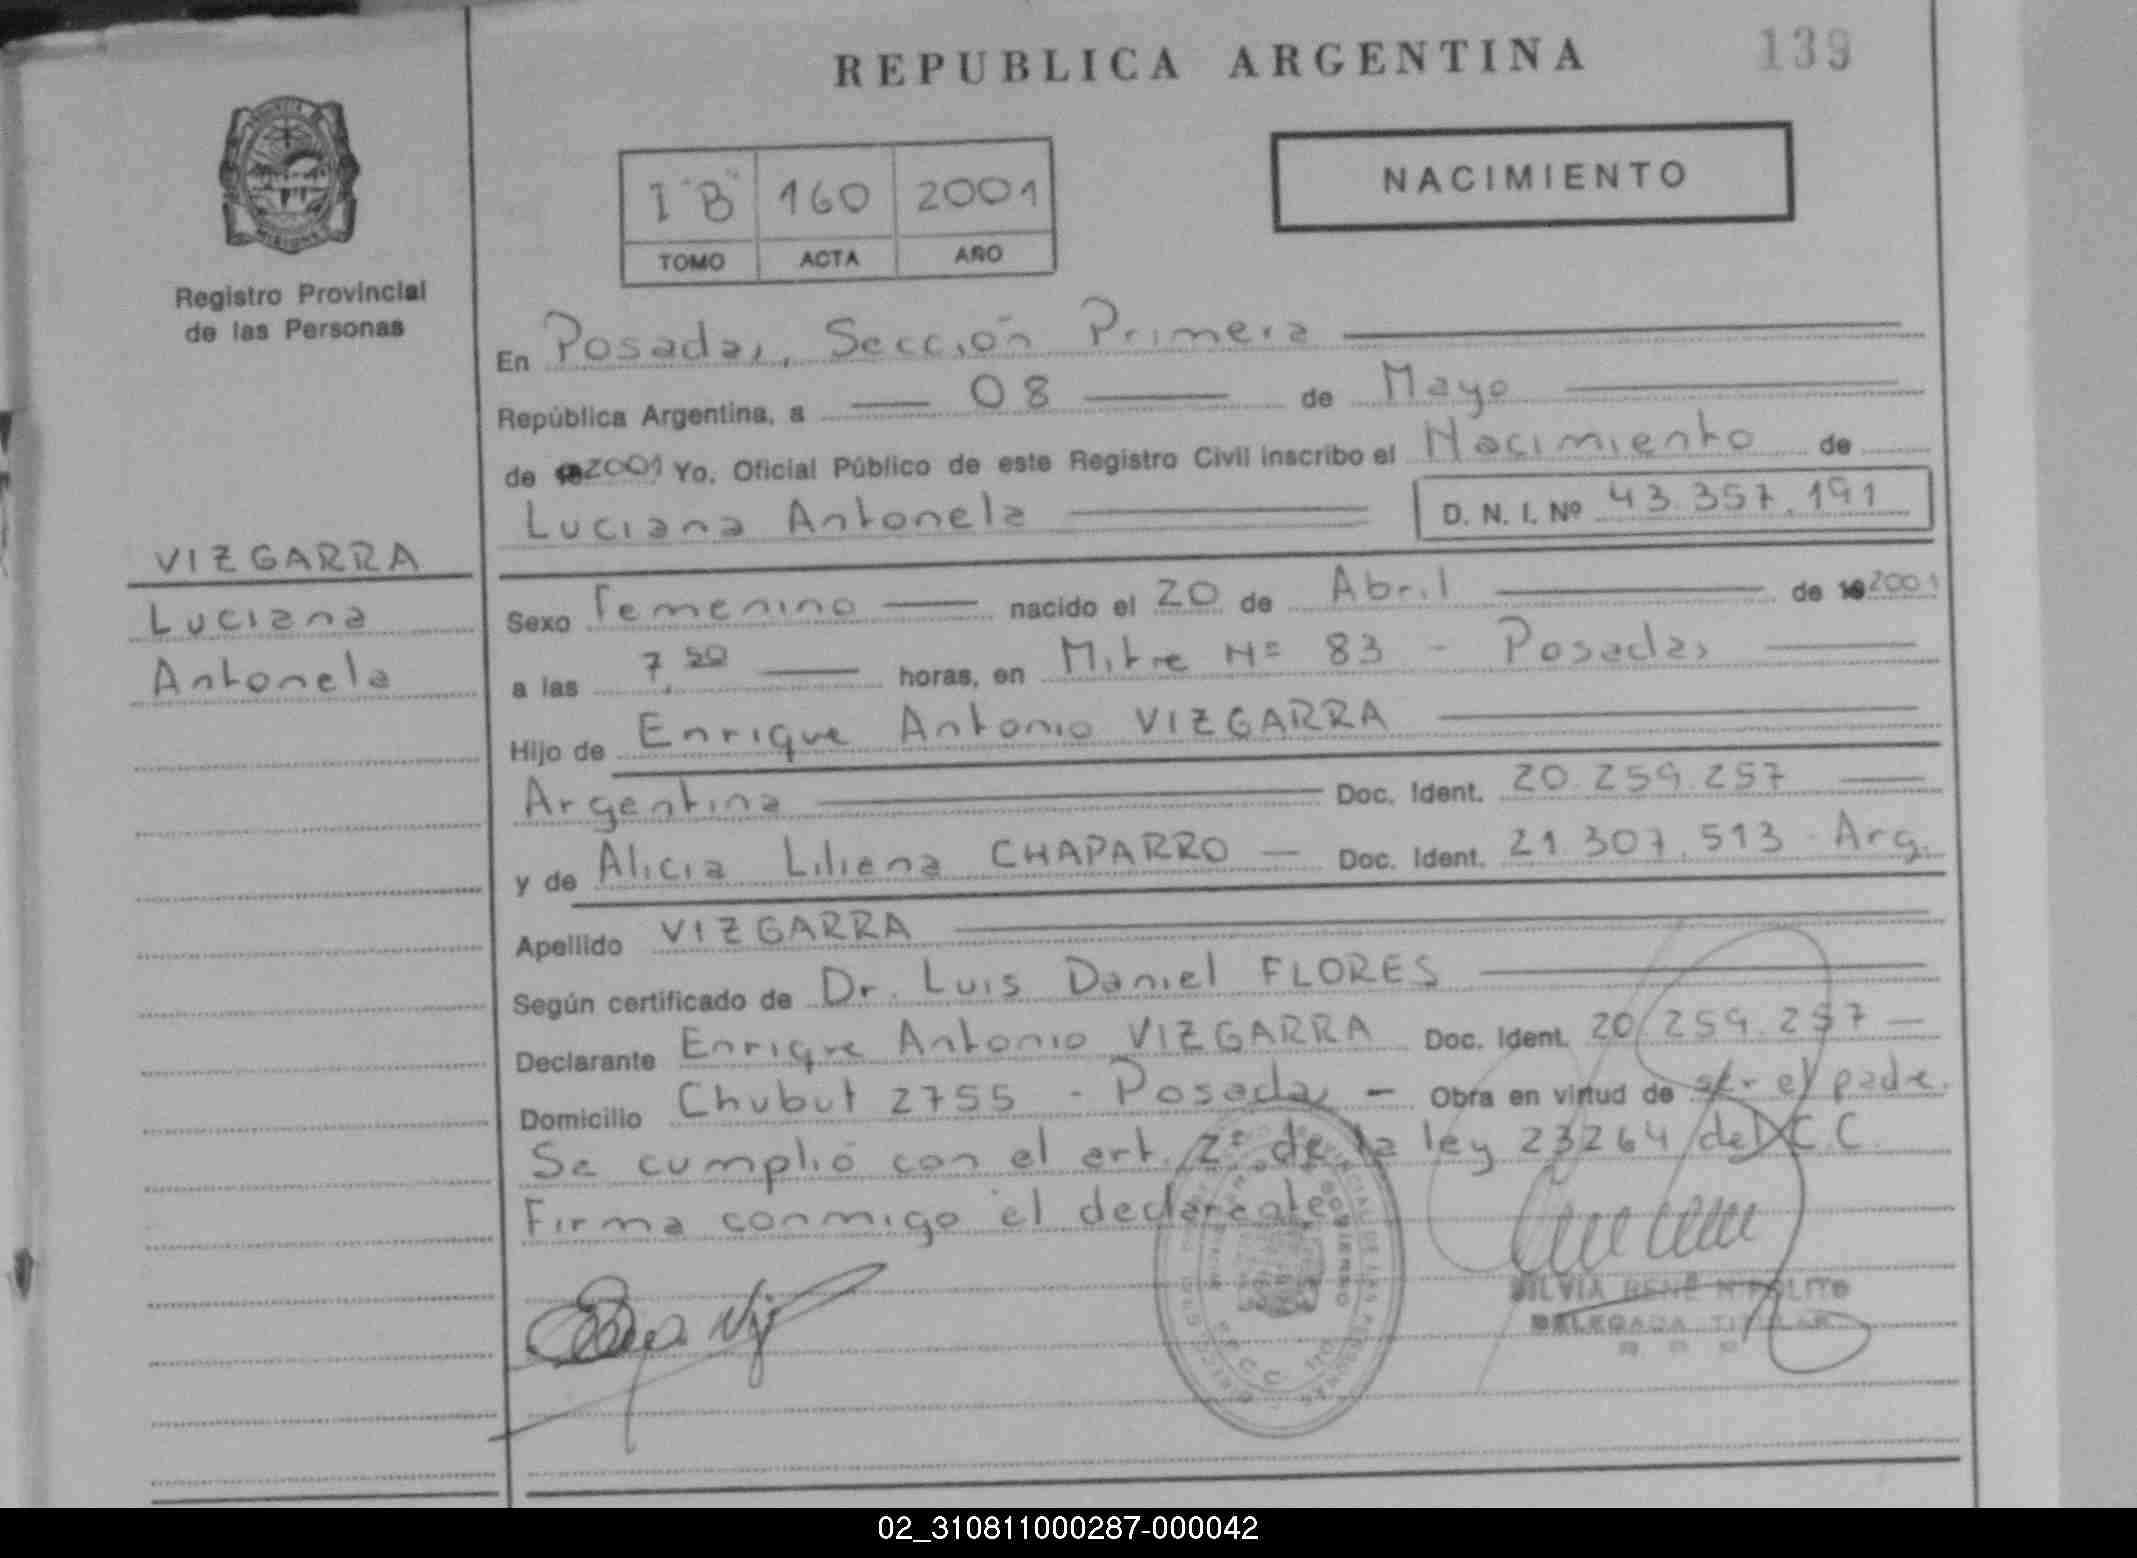 REPUBLICA ARGENTINA
139
NACIMIENTO
I "B" 160 2001
TOMO ACTA AÑO
Registro Provincial
de las Personas
VIZGARRA
Luciana
Antonela
En Posadas, Sección Primera
República Argentina, a 08 de Mayo
de 2001 Yo, Oficial Público de este Registro Civil inscribo el Nacimiento de
Luciana Antonela D. N. I. Nº 43.357.191
Sexo Femenino nacido el 20 de Abril de 2001
a las 7 horas, en Mitre Nº 83 - Posadas
Hijo de Enrique Antonio VIZGARRA
Argentina Doc. Ident. 20.259.257
y de Alicia Liliana CHAPARRO Doc. Ident. 21.307.513 - Arg.
Apellido VIZGARRA
Según certificado de Dr. Luis Daniel FLORES
Declarante Enrique Antonio VIZGARRA Doc. Ident. 20.259.257
Domicilio Chubut 2755 - Posadas - Obra en virtud de ser el padre.
Se cumplió con el art. 2º de la ley 23264 del C.C.
Firma conmigo el declarante
SILVIA RENÉ HIPOLITO
DELEGADA TITULAR
02_310811000287-000042